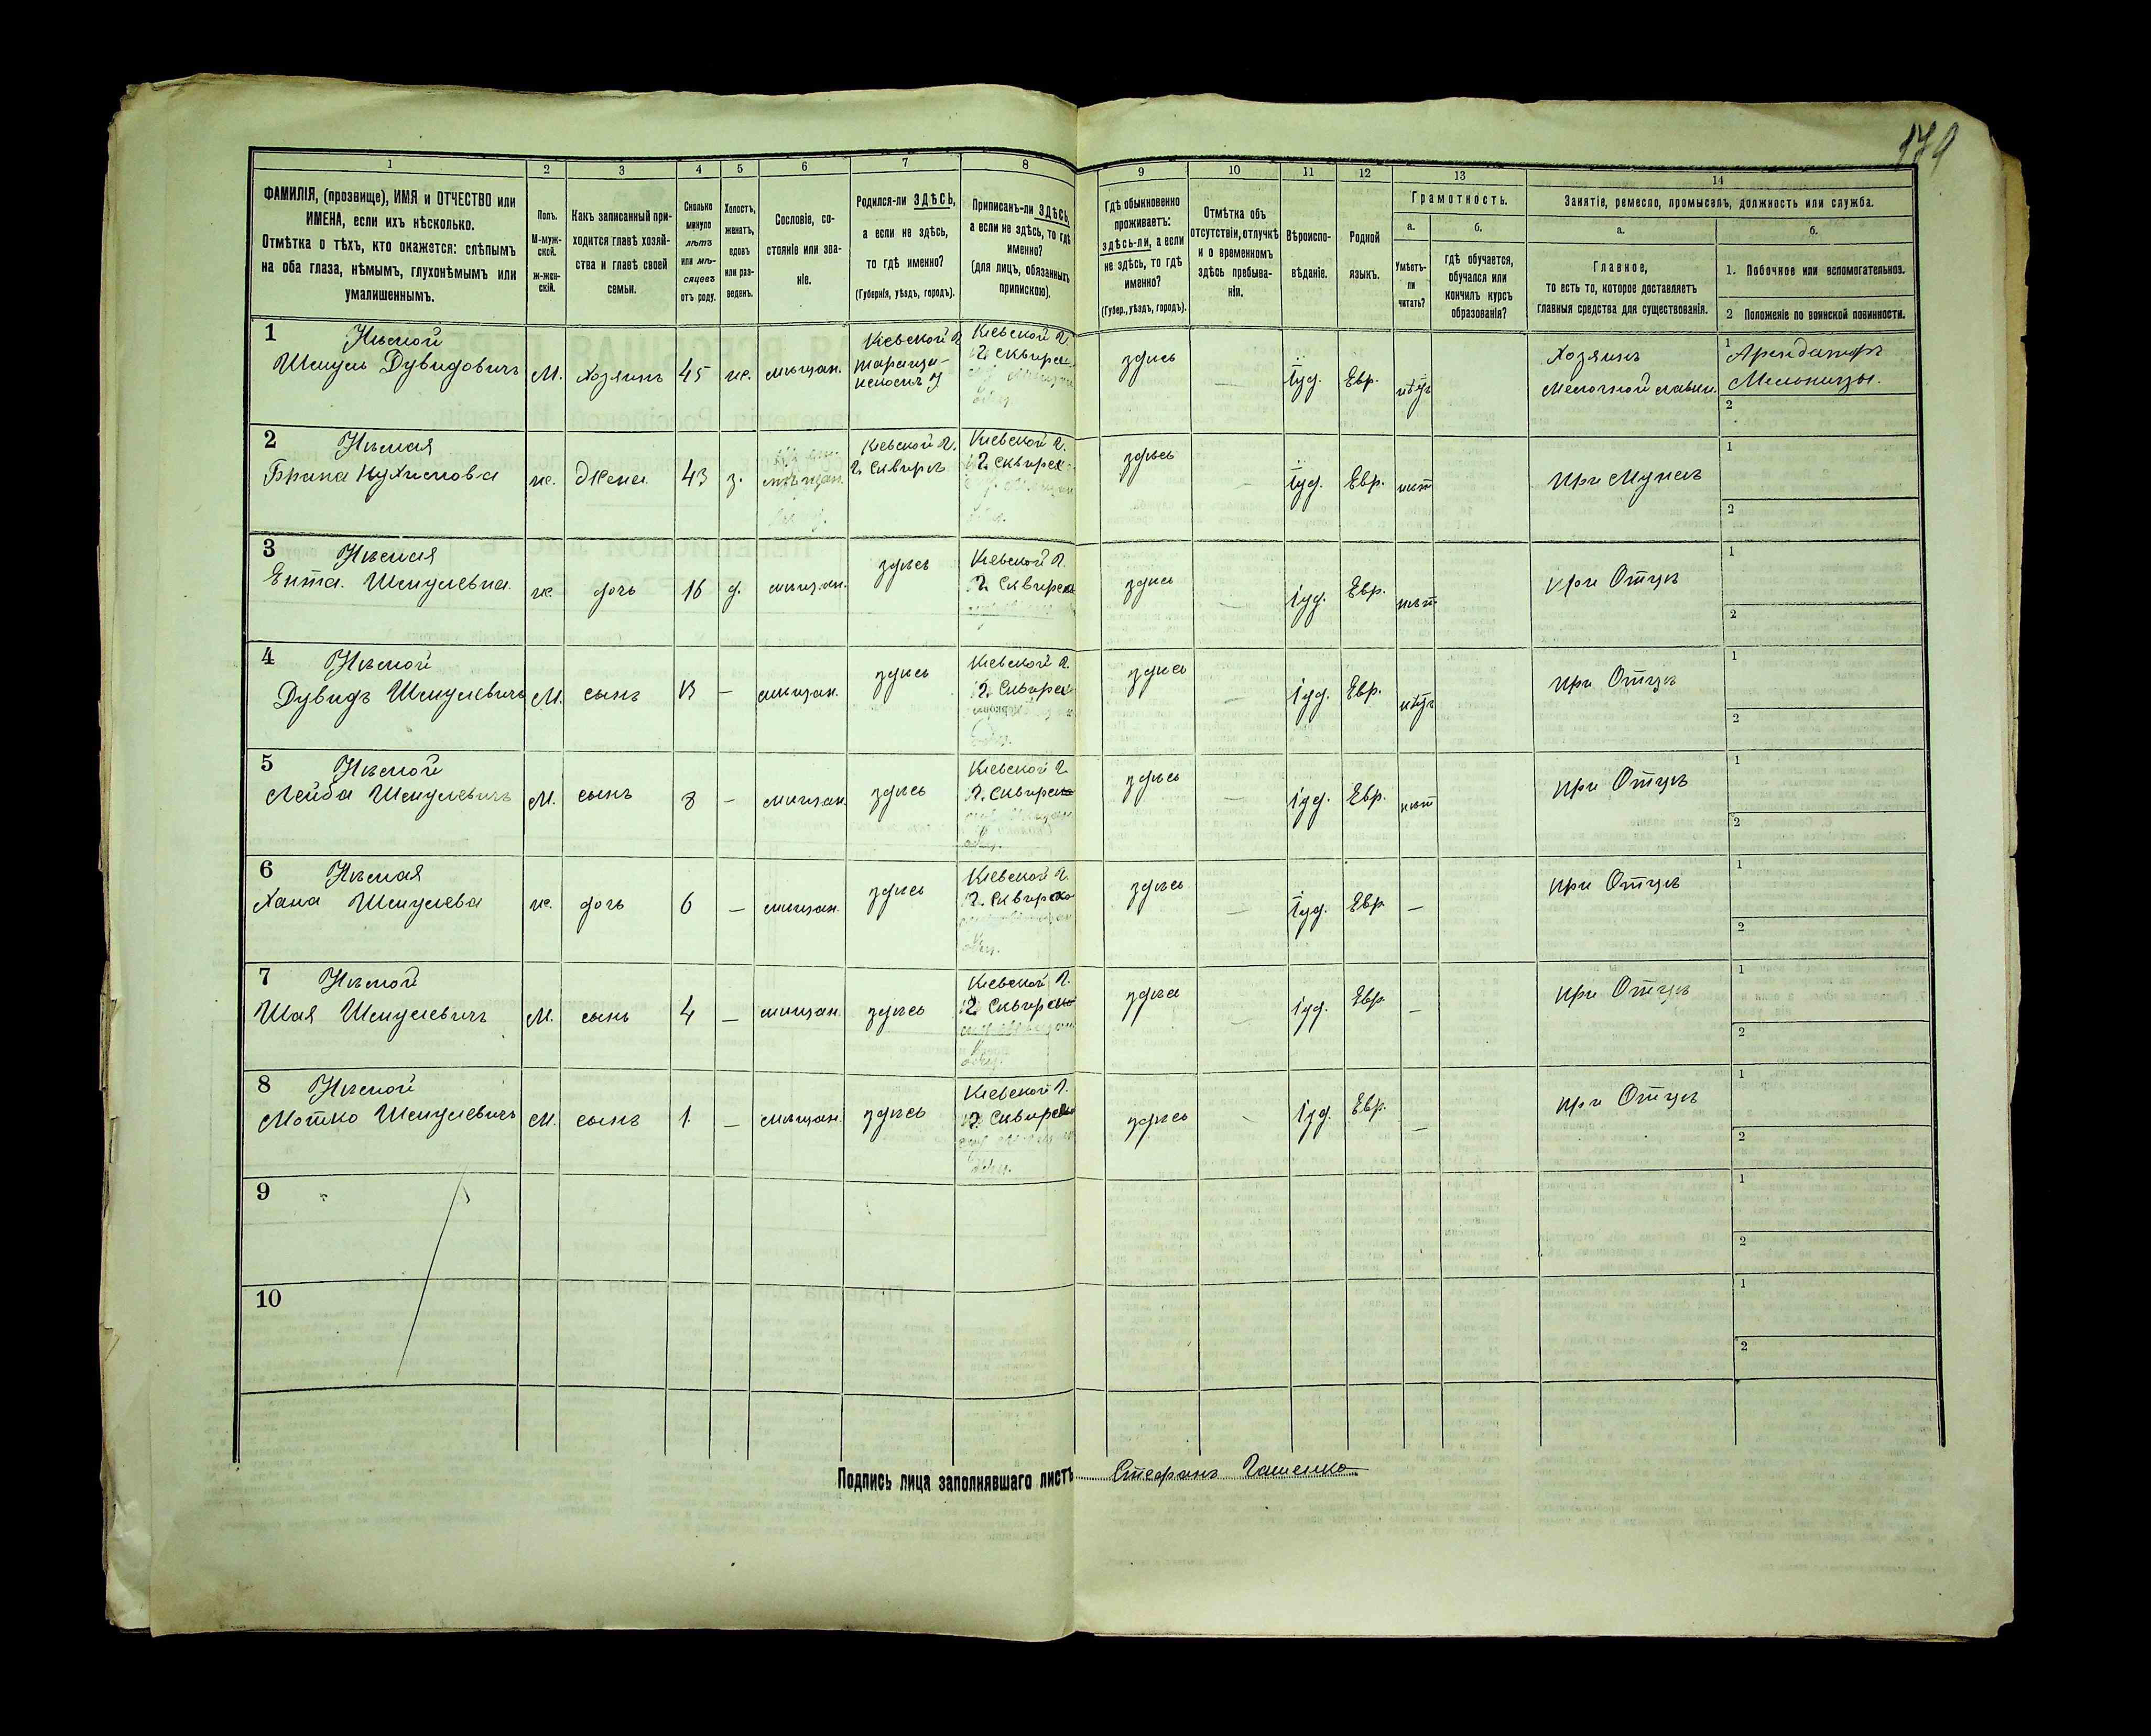 179
1 2 3 4 5 6 7 8 9 10 11 12 13 14
ФАМИЛІЯ, (прозвище), ИМЯ и ОТЧЕСТВО или
ИМЕНА, если ихъ нѣсколько.
Отмѣтка о тѣхъ, кто окажется: слѣпымъ
на оба глаза, нѣмымъ, глухонѣмымъ или
умалишеннымъ.
Полъ.
М-муж-
ской.
ж-жен-
скій.
Какъ записанный при-
ходится главѣ хозяй-
ства и главѣ своей
семьи.
Сколько
минуло
лѣтъ
или мѣ-
сяцевъ
отъ роду.
Холостъ,
женатъ,
вдовъ
или раз-
веденъ.
Сословіе, со-
стояніе или зва-
ніе.
Родился-ли ЗДѢСЬ,
а если не здѣсь,
то гдѣ именно?
(Губернія, уѣздъ, городъ).
Приписанъ-ли ЗДѢСЬ,
а если не здѣсь, то гдѣ
именно?
(для лицъ, обязанныхъ
припискою).
Гдѣ обыкновенно
проживаетъ:
здѣсь-ли, а если
не здѣсь, то гдѣ
именно?
(Губер., уѣздъ, городъ).
Отмѣтка объ
отсутствіи, отлучкѣ
и о временномъ
здѣсь пребыва-
ніи.
Вѣроиспо-
вѣданіе.
Родной
языкъ.
Грамотность.
а.
Умѣетъ-
ли
читать?
б.
гдѣ обучается,
обучался или
кончилъ курсъ
образованія?
Занятіе, ремесло, промыселъ, должность или служба.
а.
Главное,
то есть то, которое доставляетъ
главныя средства для существованія.
б.
1. Побочное или вспомогательное.
2 Положеніе по воинской повинности.
1 Нѣмой
Шмуль Дувидовичъ М. Хозяинъ 45 ж. мѣщан.
Кіевской г.
Кіевской г.
г. Сквирск
здѣсь — Іуд. Евр.
Хозяинъ
Мелочной лавки.
1 Арендаторъ
2
2 Нѣмая
ж. Жена 43 з. мѣщан.
Кіевской г.
г. Сквирѣ
Кіевской г.
г. Сквирск
здѣсь — Іуд. Евр. нѣт
при Мужѣ
1
2
3 Нѣмая
Ента Шмулевна ж. дочь 16 д. мѣщан. здѣсь
Кіевской г.
г. Сквирск
здѣсь Іуд. Евр. нѣт.
при Отцѣ
1
2
4 Нѣмой
Дувидъ Шмулевичъ М. сынъ 13 — мѣщан. здѣсь
Кіевской г.
г. Сквирск
здѣсь — Іуд. Евр.
при Отцѣ
1
2
5 Нѣмой
Лейба Шмулевичъ М. сынъ 8 — мѣщан. здѣсь
Кіевской г.
г. Сквирско
здѣсь — Іуд. Евр. нѣт
при Отцѣ
1
2
6 Нѣмая
Хана Шмулева ж. дочь 6 — мѣщан. здѣсь
Кіевской г.
г. Сквирско
здѣсь — Іуд. Евр —
при Отцѣ
1
2
7 Нѣмой
Шая Шмулевичъ М. сынъ 4 — мѣщан. здѣсь
Кіевской г.
г. Сквирско
здѣсь — Іуд. Евр —
при Отцѣ
1
2
8 Нѣмой
Мотко Шмулевичъ М. сынъ 1. — мѣщан. здѣсь
Кіевской г.
г. Сквирско
здѣсь — Іуд. Евр. —
при Отцѣ
1
2
9
1
2
10
1
2
Подпись лица заполнявшаго листъ Стефанъ